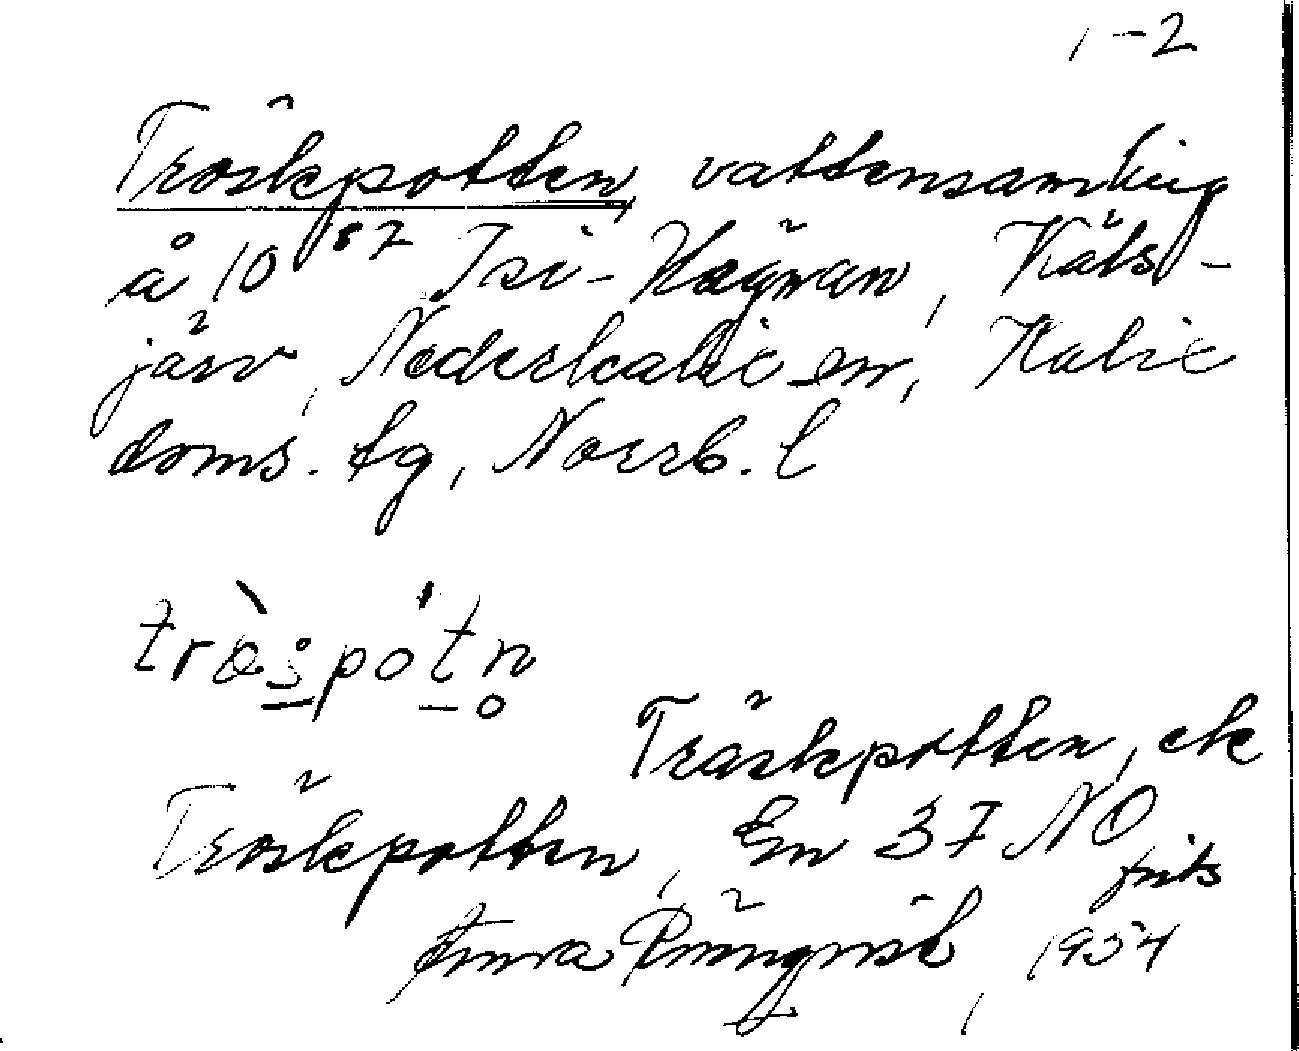 1-2
Träskpotten, vattensamling
å 10⁸⁷ Isi-Hägnan, Käts-
järv, Nederkalix sn, Kalix
doms. tg, Norrb. l
trὰspo'tn
Träskpotten, ek
Träskpotten, En 37 NO
Anna Rönnqvist, 1954